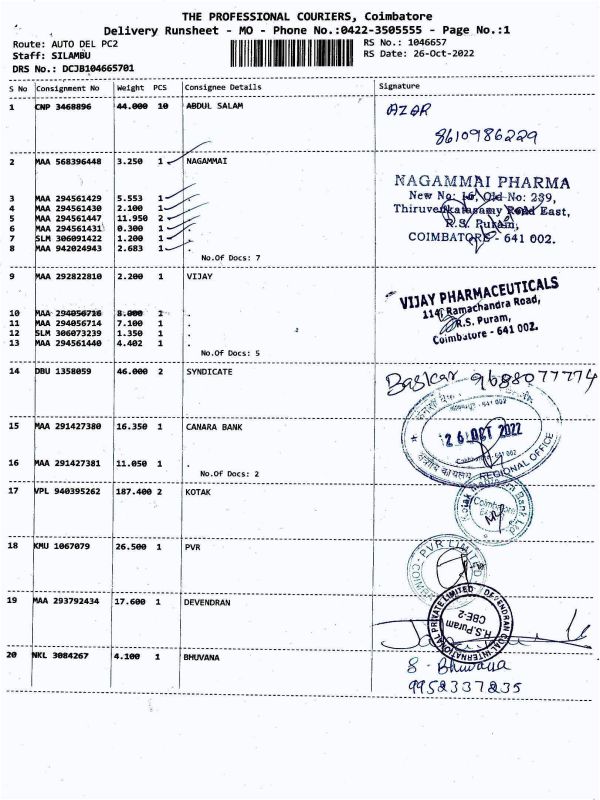 THE PROFESSIONAL COURIERS, Coimbatore
Delivery Runsheet - MO - Phone No.:0422-3505555 - Page No.:1
Route: AUTO DEL PC2
RS No.: 1046657
Staff: SILAMBU
RS Date: 26-Oct-2022
DRS No.: DCJB104665701
S No Consignment No Weight PCS Consignee Details Signature
1 CNP 3468896 44.000 10 ABDUL SALAM
AZAR
8610986229
2 MAA 568396448 3.250 1 NAGAMMAI
3 MAA 294561429 5.553 1 .
4 MAA 294561430 2.100 1 .
5 MAA 294561447 11.950 2 .
6 MAA 294561431 0.300 1 .
7 SLM 306091422 1.200 1 .
8 MAA 942024943 2.683 1 .
No.Of Docs: 7
NAGAMMAI PHARMA
New No: 16, Old No: 239,
Thiruvenkatasamy Road East,
R.S. Puram,
COIMBATORE - 641 002.
9 MAA 292822810 2.200 1 VIJAY
10 MAA 294056716 8.000 1 .
11 MAA 294056714 7.100 1 .
12 SLM 306073239 1.350 1 .
13 MAA 294561440 4.402 1 .
No.Of Docs: 5
VIJAY PHARMACEUTICALS
114, Ramachandra Road,
R.S. Puram,
Coimbatore - 641 002.
14 DBU 1358059 46.000 2 SYNDICATE
Baskar 9688077774
15 MAA 291427380 16.350 1 CANARA BANK
26 OCT 2022
REGIONAL OFFICE
16 MAA 291427381 11.050 1 .
No.Of Docs: 2
17 VPL 940395262 187.400 2 KOTAK
Coimbatore
18 KMU 1067079 26.500 1 PVR
PVR LIMITED
19 MAA 293792434 17.600 1 DEVENDRAN
R.S.Puram
CBE-2
20 NKL 3084267 4.100 1 BHUVANA
S. Bhuvana
9952337235